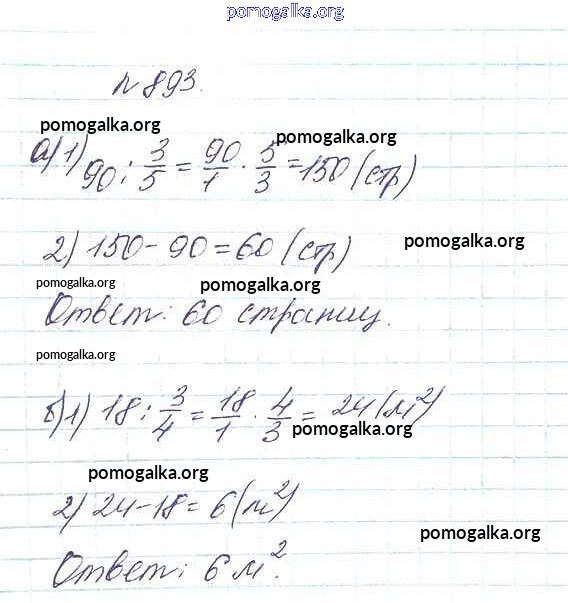 pomogalka.org
№893.
pomogalka.org
pomogalka.org
а) 1) 90 : 3/5 = 90/1 · 5/3 = 150 (стр)
2) 150 - 90 = 60 (стр)
pomogalka.org
pomogalka.org
pomogalka.org
Ответ: 60 страниц.
pomogalka.org
б) 1) 18 : 3/4 = 18/1 · 4/3 = 24 (м²)
pomogalka.org
pomogalka.org
2) 24 - 18 = 6 (м²)
pomogalka.org
Ответ: 6 м².